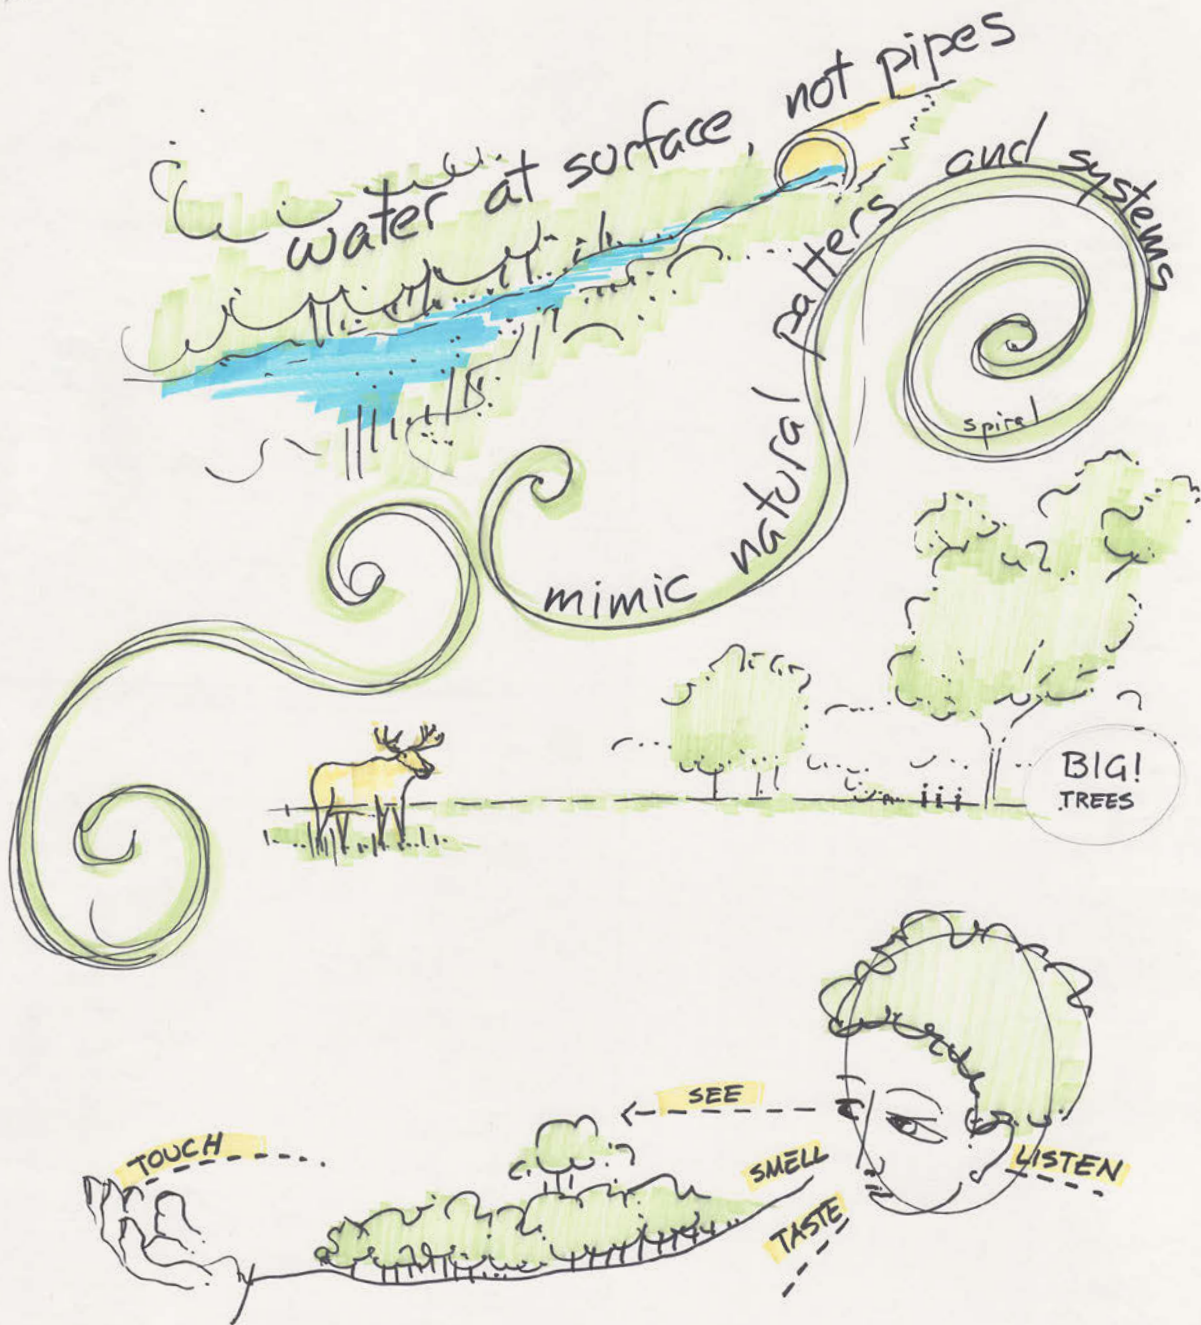 water at surface, not pipes
mimic natural patters and systems
spiral
BIG!
TREES
SEE
TOUCH
SMELL
LISTEN
TASTE